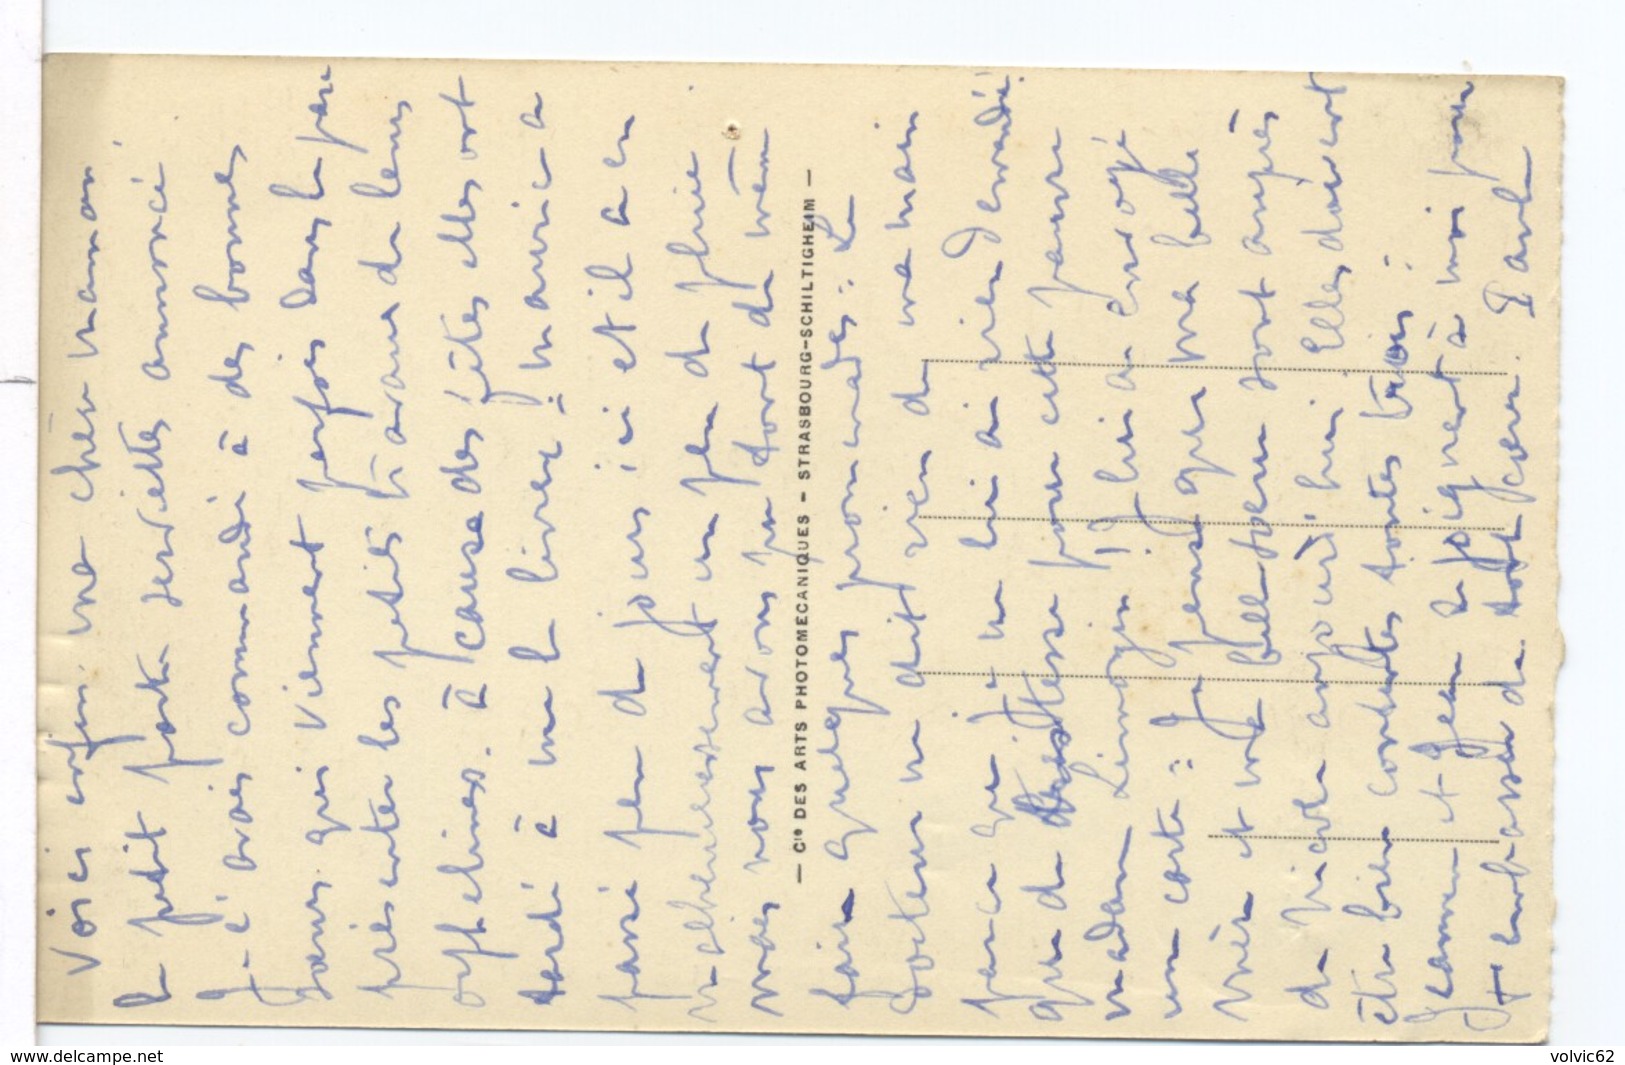 Voici enfin, ma chère maman,
le petit porte serviettes annoncé
Je l'avais commandé à des bonnes
sœurs qui viennent parfois dans le parc
présenter les petits travaux de leurs
orphelines. à cause des fêtes elles ont
tardé à me le livrer : Maurice a
passé peu de jours ici et il a eu
malheureusement un peu de pluie
mais nous avons pu tout de même
faire quelques promenades : Le
docteur ne dit rien de ma main
parce que je ne lui ai rien demandé.
que de tristesse pour cette pauvre
madame Limozin ! Je lui ai envoyé
une carte : Je pense que ma belle
mère et ma belle-sœur sont auprès
de Nicole aujourd'hui Elles doivent
être bien contentes toutes trois :
Jeanne et Jean se joignent à moi pour
t'embrasser de tout cœur. Paule
— Cie DES ARTS PHOTOMECANIQUES - STRASBOURG-SCHILTIGHEIM —
www.delcampe.net
volvic62